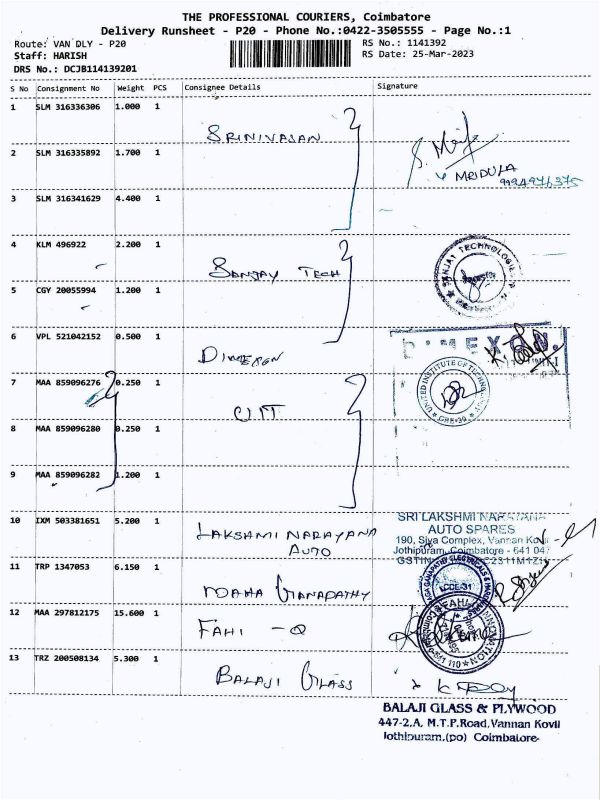 THE PROFESSIONAL COURIERS, Coimbatore
Delivery Runsheet - P20 - Phone No.:0422-3505555 - Page No.:1
Route: VAN DLY - P20
RS No.: 1141392
Staff: HARISH
RS Date: 25-Mar-2023
DRS No.: DCJB114139201
S No Consignment No Weight PCS Consignee Details Signature
1 SLM 316336306 1.000 1
SRINIVASAN
2 SLM 316335892 1.700 1
MRIDULA
9994976375
3 SLM 316341629 4.400 1
4 KLM 496922 2.200 1
SANJAY TECH
SANJAY TECHNOLOGIE
5 CGY 20055994 1.200 1
6 VPL 521042152 0.500 1
DIMEXON
DIMEXON
7 MAA 859096276 0.250 1
UIT
UNITED INSTITUTE OF TECHNOLOGY
CBE-20
8 MAA 859096280 0.250 1
9 MAA 859096282 1.200 1
10 IXM 503381651 5.200 1
LAKSHMI NARAYANA
AUTO
SRI LAKSHMI NARAYANA
AUTO SPARES
190, Siva Complex, Vannan Kovil
Jothipuram, Coimbatore - 641 047
11 TRP 1347053 6.150 1
MAHA GANAPATHY
MAHA GANAPATHY ELECTRICALS &
12 MAA 297812175 15.600 1
FAHI - Q
13 TRZ 200508134 5.300 1
BALAJI GLASS
BALAJI GLASS & PLYWOOD
447-2,A, M.T.P.Road, Vannan Kovil
Jothipuram,(po) Coimbatore-